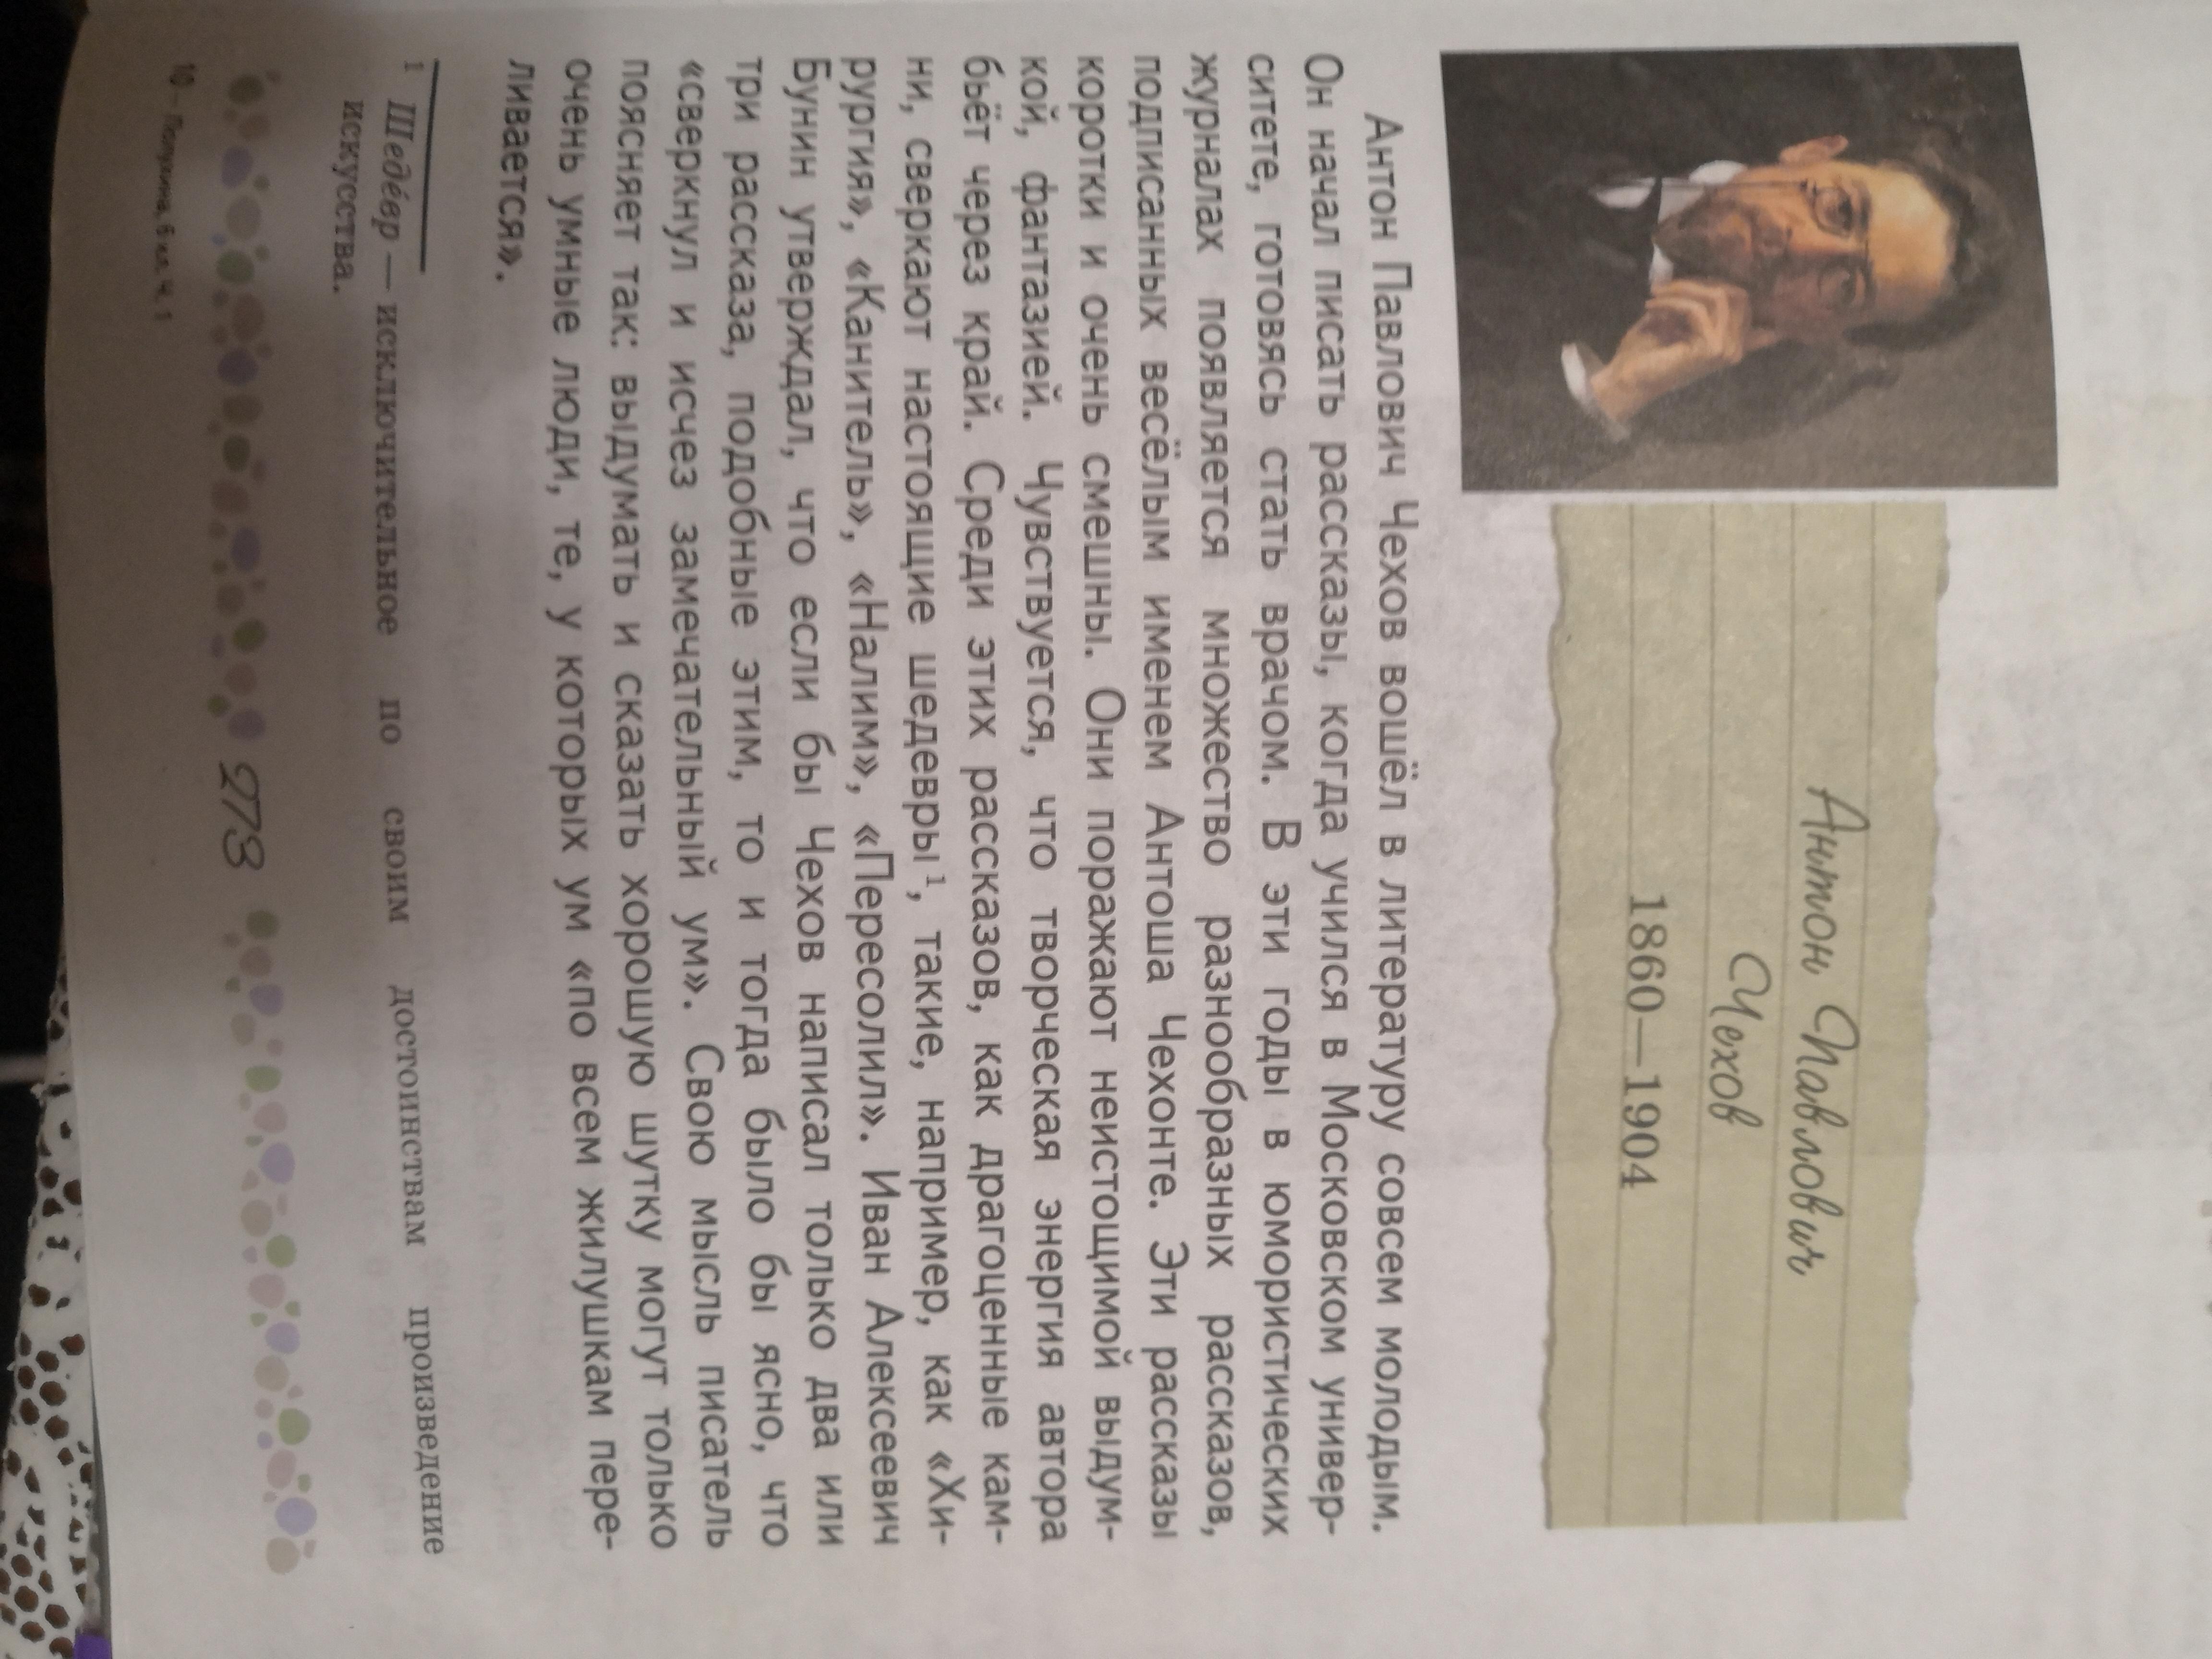 Антон Павлович
Чехов
1860—1904
Антон Павлович Чехов вошёл в литературу совсем молодым.
Он начал писать рассказы, когда учился в Московском универ-
ситете, готовясь стать врачом. В эти годы в юмористических
журналах появляется множество разнообразных рассказов,
подписанных весёлым именем Антоша Чехонте. Эти рассказы
коротки и очень смешны. Они поражают неистощимой выдум-
кой, фантазией. Чувствуется, что творческая энергия автора
бьёт через край. Среди этих рассказов, как драгоценные кам-
ни, сверкают настоящие шедевры¹, такие, например, как «Хи-
рургия», «Канитель», «Налим», «Пересолил». Иван Алексеевич
Бунин утверждал, что если бы Чехов написал только два или
три рассказа, подобные этим, то и тогда было бы ясно, что
«сверкнул и исчез замечательный ум». Свою мысль писатель
поясняет так: выдумать и сказать хорошую шутку могут только
очень умные люди, те, у которых ум «по всем жилушкам пере-
ливается».
¹ Шеде́вр — исключительное по своим достоинствам произведение
искусства.
10 – Полухина, 6 кл. Ч. 1
273